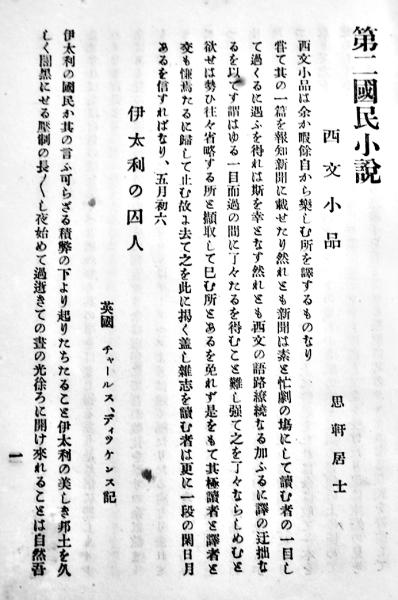 第二國民小說
西文小品
思軒居士
西文小品は余か暇餘自から樂しむ所を譯するものなり
嘗て其の一篇を報知新聞に載せたり然れとも新聞は素と忙劇の塲にして讀む者の一目し
て過くるに遇ふを得れは斯を幸となす然れとも西文の語路繚繞なる加ふるに譯の迂拙な
るを以てす謂はゆる一目而過の間に了々たるを得むこと難し强て之を了々ならしめむと
欲せは勢ひ往々省略する所と擷取して已む所とあるを免れず是をもて其極讀者と譯者と
交も慊焉たるに歸して止む故よ去て之を此に揭く盖し雜志を讀む者は更に一段の閑日月
あるを信すればなり、五月初六
伊太利の囚人
英國 チャールス、ディッケンス記
伊太利の國民か其の言ふ可らざる積弊の下より起りたちたること伊太利の美しき邦土を久
しく闇黑にせる壓制の長〱し夜始めて過逝きての晝の光徐ろに開け來れることは自然吾
一